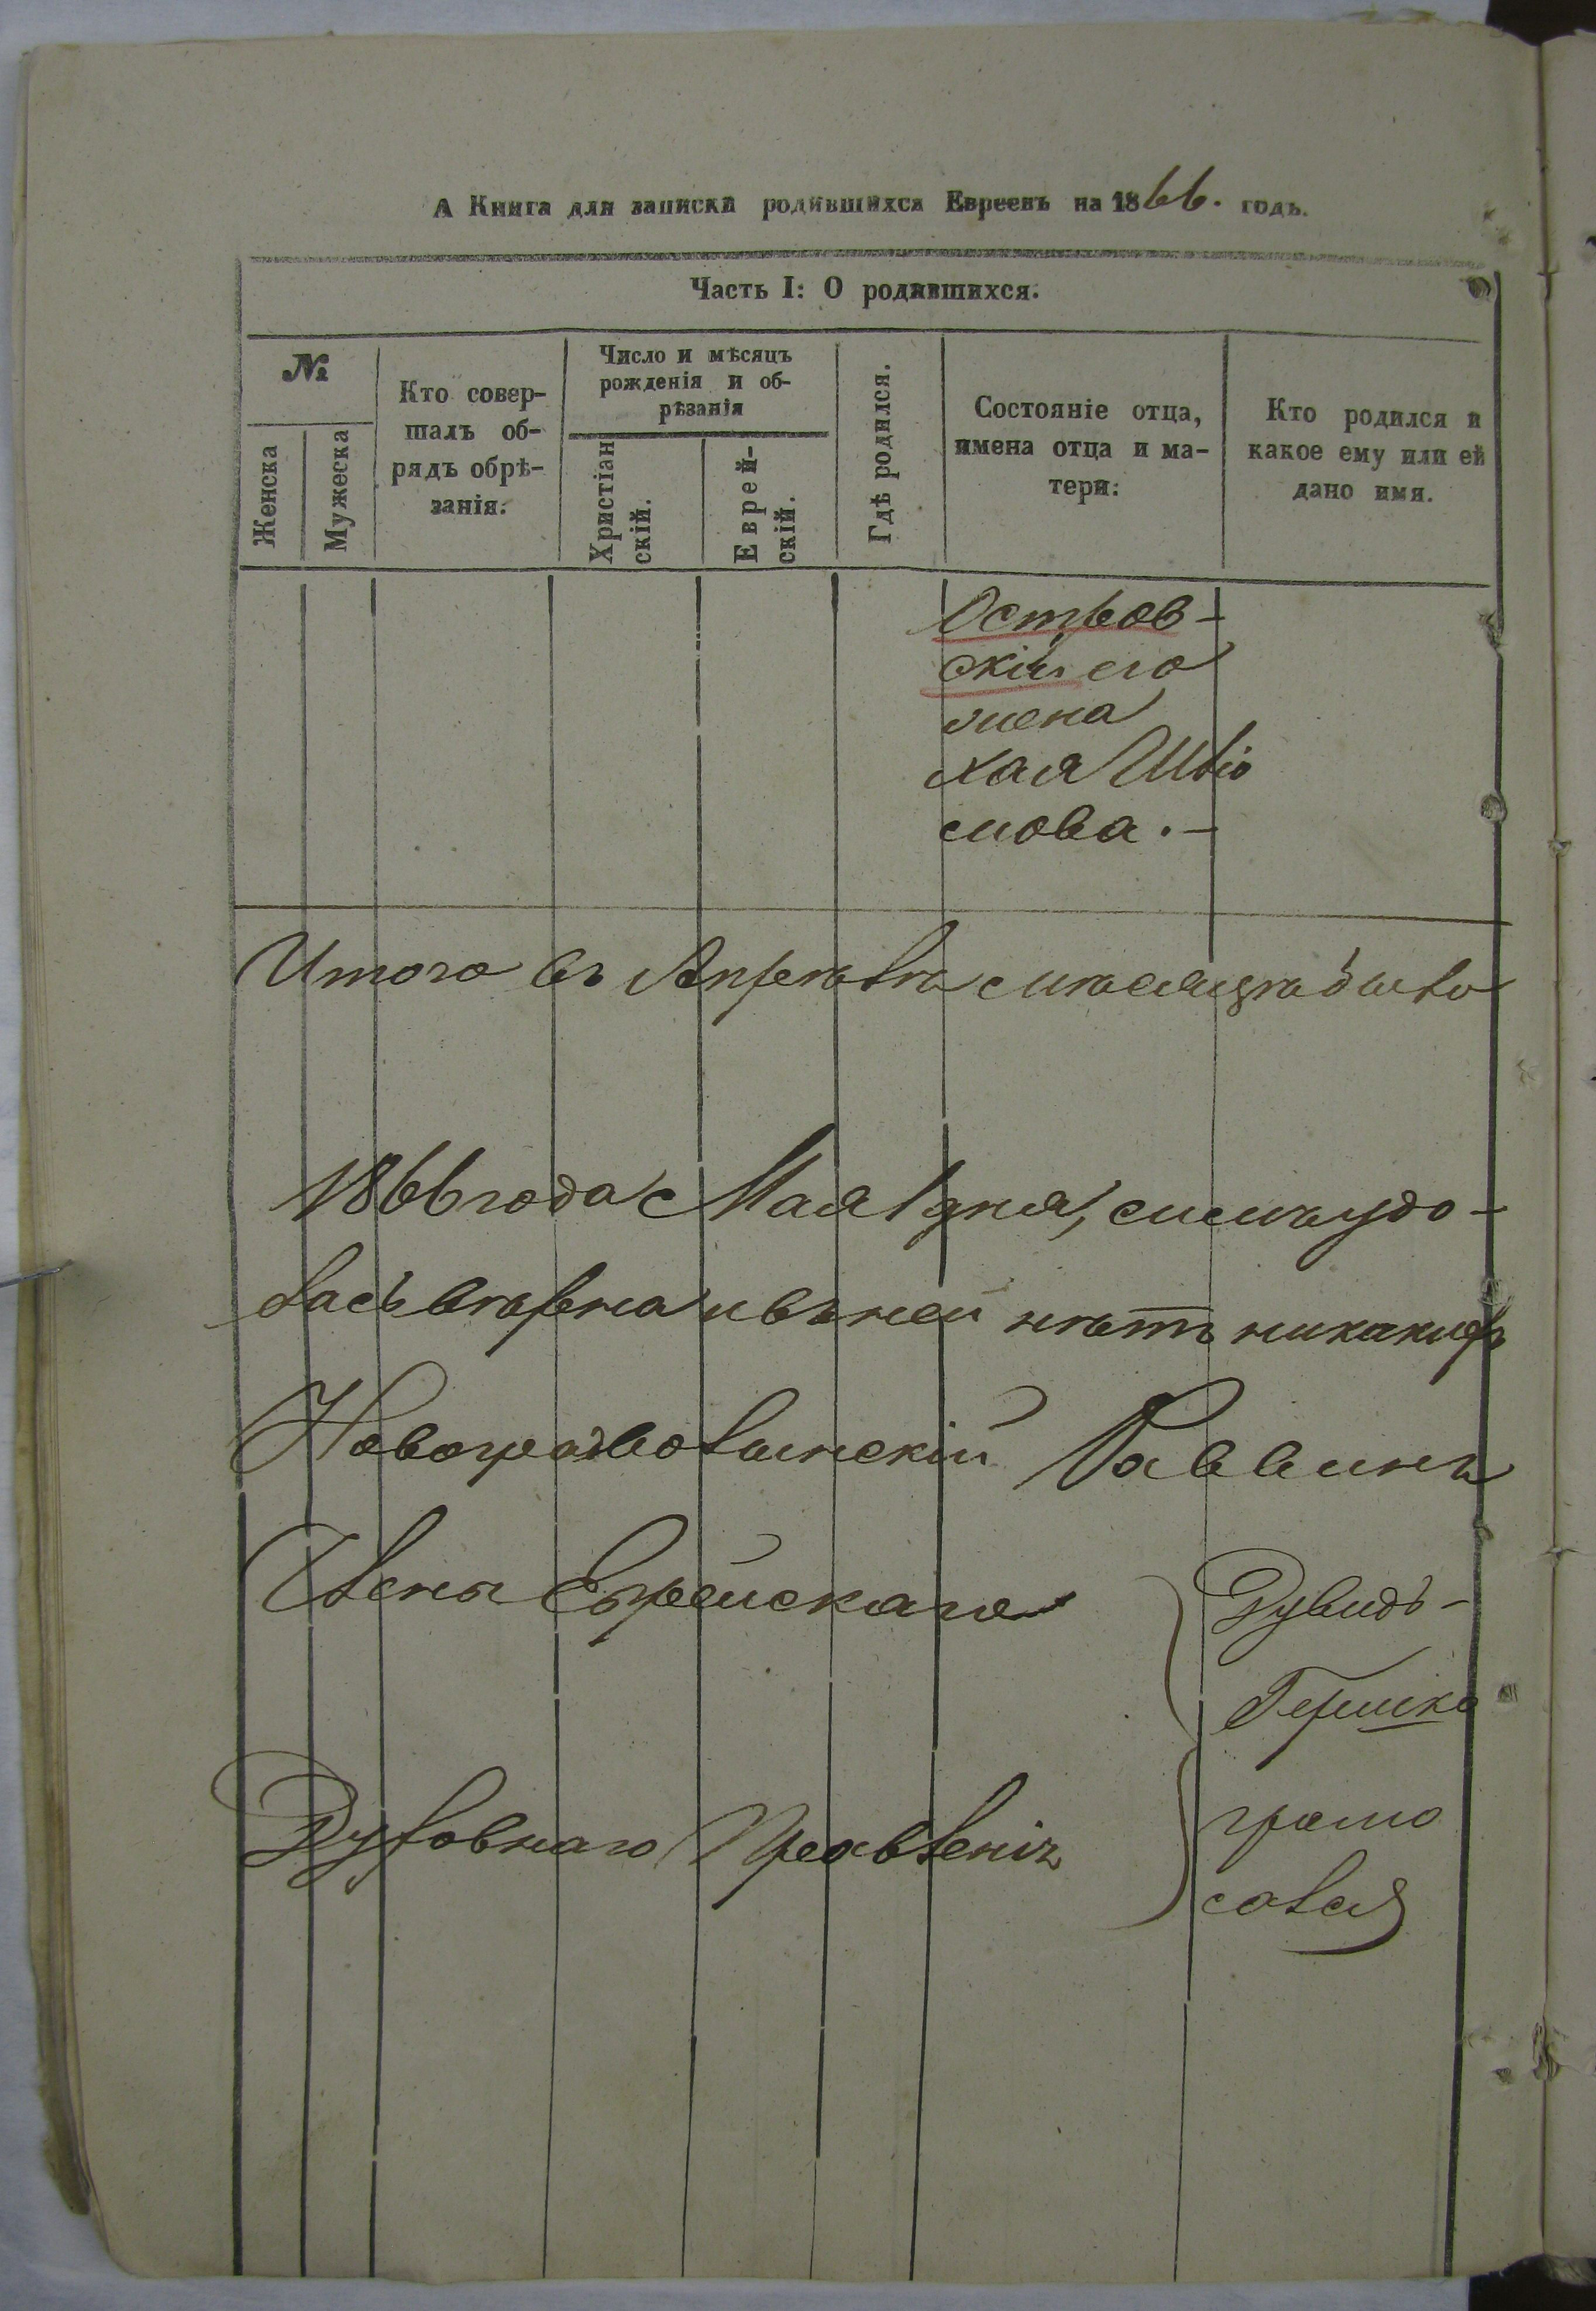 А Книга для записки родившихся Евреевъ на 1866. годъ.
Часть I: О родившихся.
№
Женска
Мужеска
Кто совер-
шалъ об-
рядъ обрѣ-
занія.
Число и мѣсяцъ
рожденія и об-
рѣзанія
Христіан
скій.
Еврей-
скій.
Гдѣ родился.
Состояніе отца,
имена отца и ма-
тери.
Кто родился и
какое ему или ей
дано имя.
Островъ-
скій его
жена
Хая Шліо
мова.-
Итого въ Апрелѣ мѣсяцѣ было
1866 года Мая 1 дня,
вѣрена и въ ней нѣтъ никакихъ
Новоградволынскій Раввинъ
Члены Еврейскаго
Духовнаго Правленія
Дувидъ-
Гершко